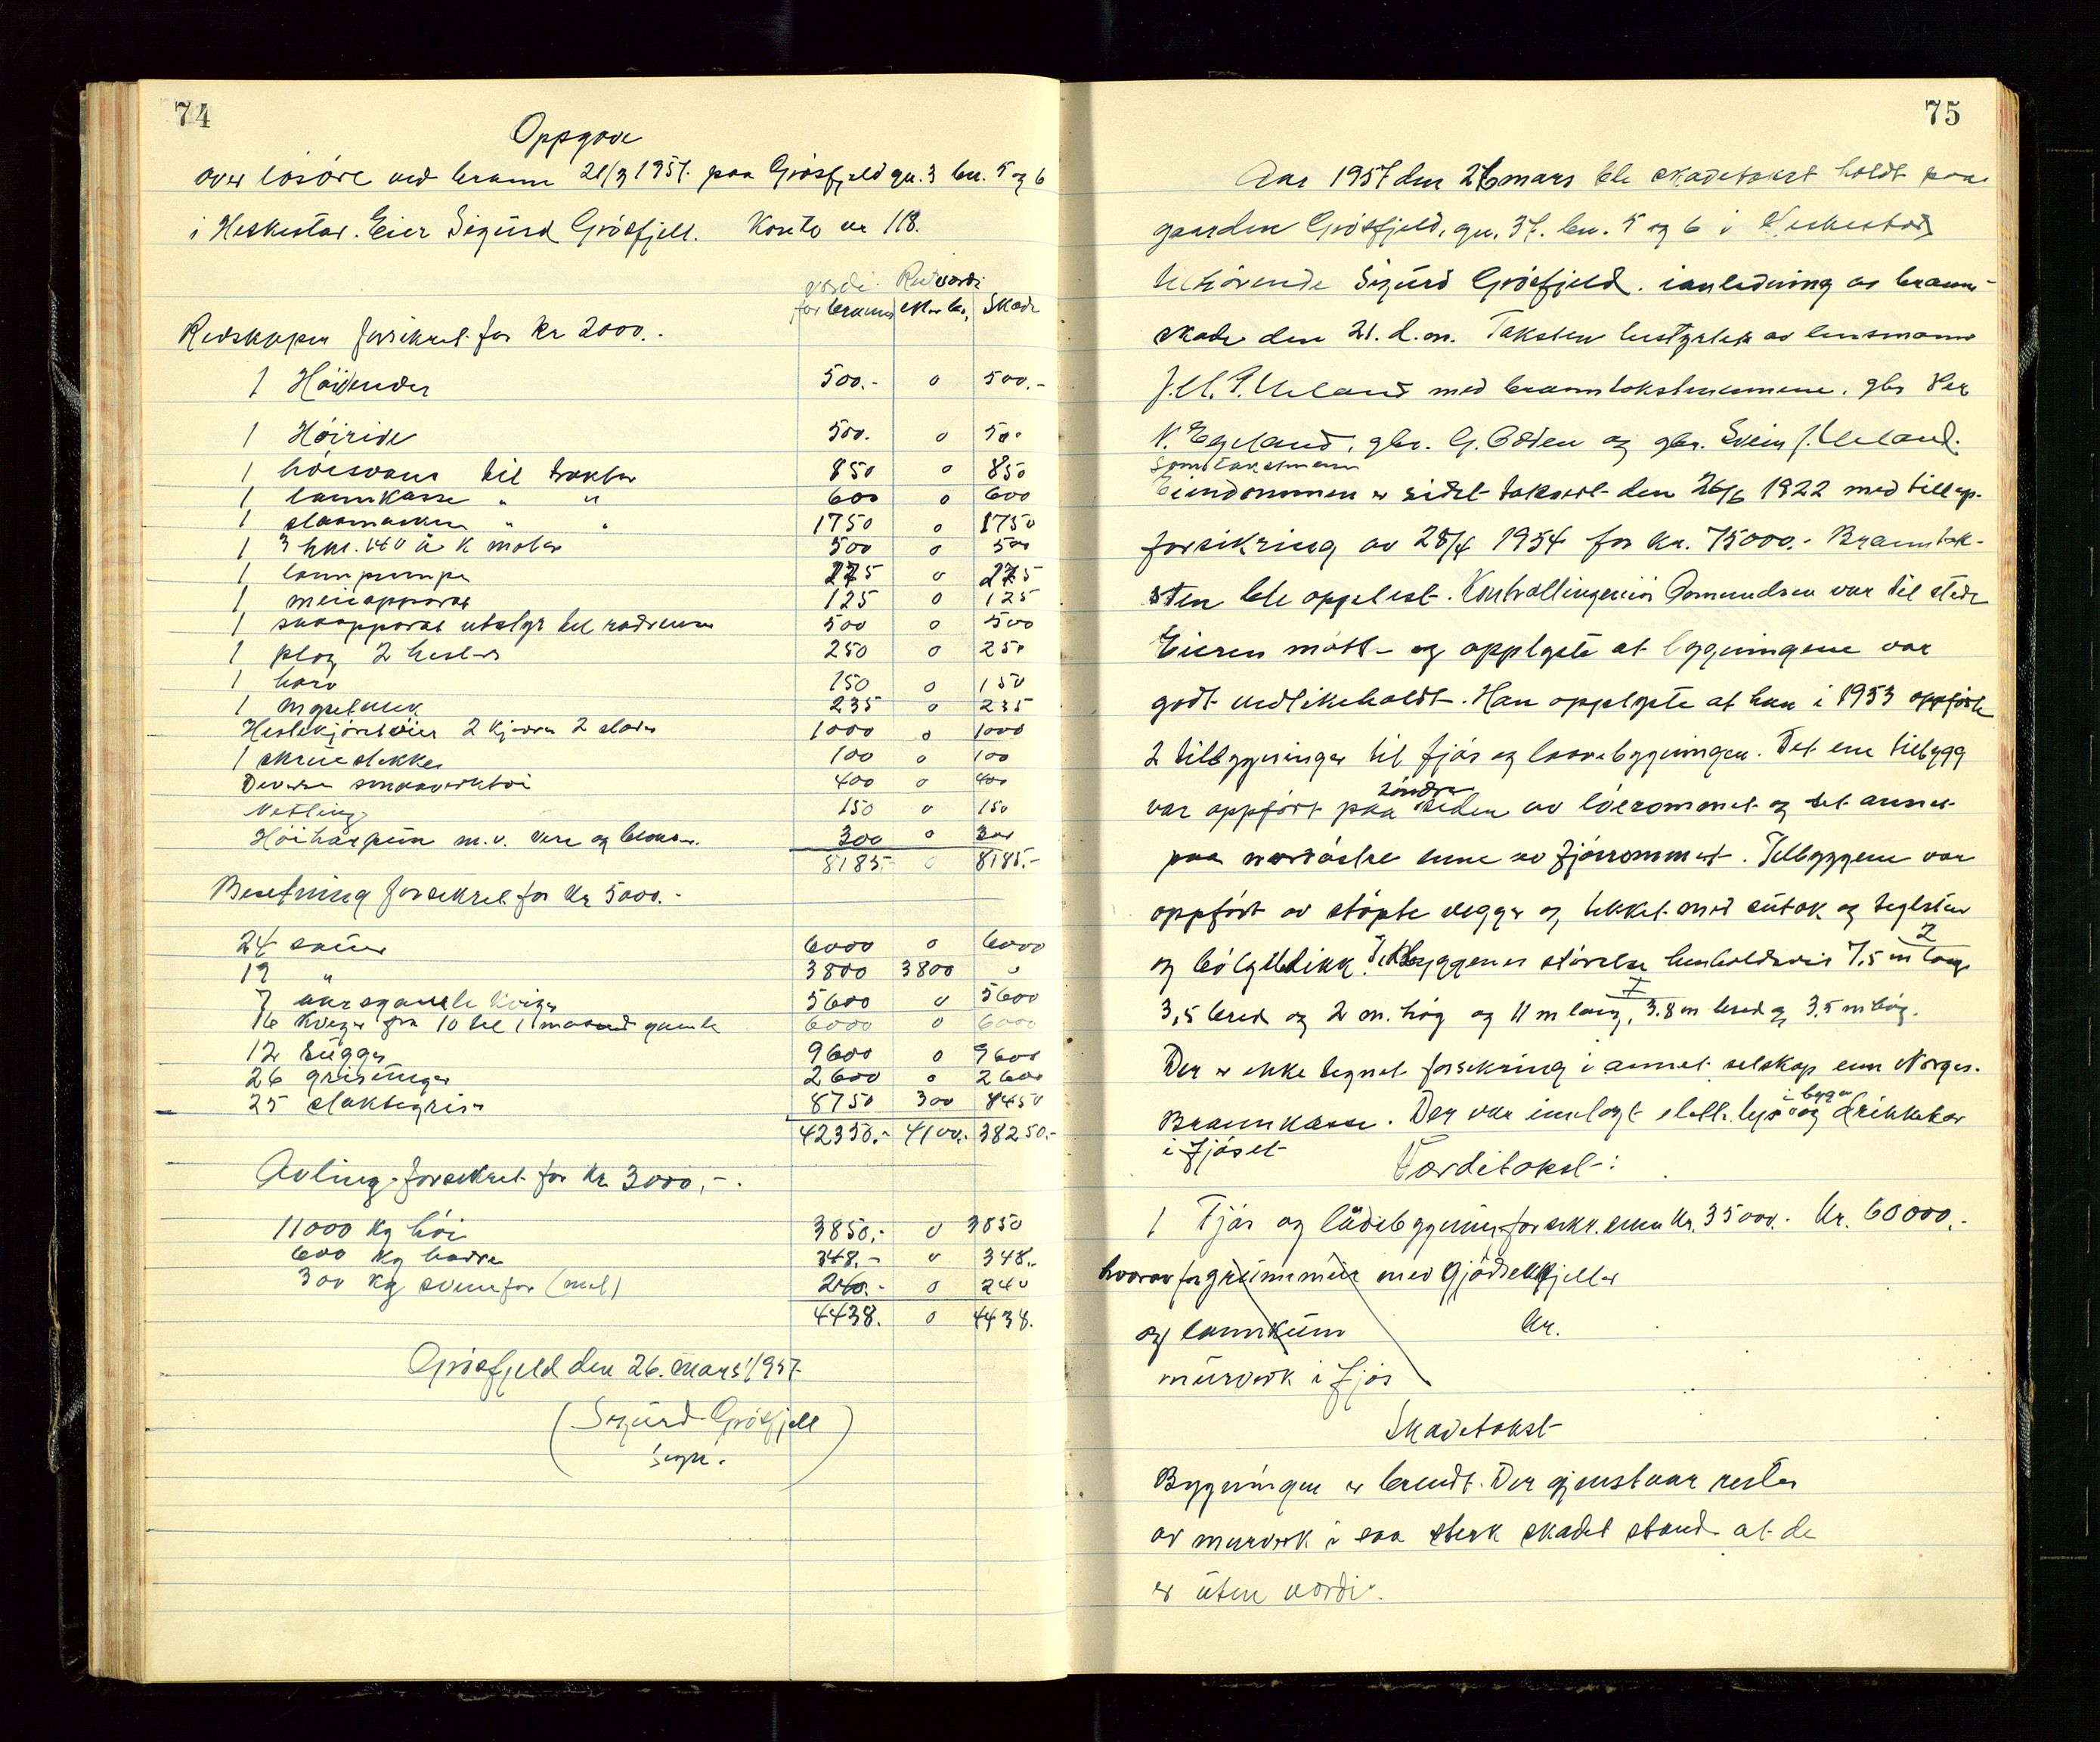 74
Oppgave
over løsøre ved brann 21/3 1957. paa Grøsfjeld gn. 3 bn. 5 og 6
i Heskestad. Eier Sigurd Grøsfjell. Konto nr 118.
verdi Restverdi
før brannen efter br. Skade
Redskaper forsikret for kr 2000.-
1 Høivender 500.- 0 500.-
1 Høirive 500. 0 500
1 høisvans til traktor 850 0 850
1 lannkasse " " 600 0 600
1 slaamaskin " " 1750 0 1750
1 3 hk. motor 500 0 500
1 lannpumpe 275 0 275
1 125 0 125
1 utstyr til 500 0 500
1 plog 2 hest-s 250 0 250
1 harv 150 0 150
1 235 0 235
Hestekjøretøier 2 kjerrer 2 sleder 1000 0 1000
1 skruestikke 100 0 100
Diverse smaaverktøi 400 0 400
Netting 150 0 150
Høiharpun m.v. vire og blokker. 300 0 300
8185- 0 8185.-
Besetning forsikret for kr 5000.-
24 sauer 6000 0 6000
19 " 3800 3800 0
7 aarsgamle kviger 5600 0 5600
16 kviger fra 10 til 1 maaned gamle 6000 0 6000
12 sugger 9600 0 9600
26 grisunger 2600 0 2600
25 slaktegris 8750 300 8450
42350.- 4100.- 38250.-
Avling forsikret for kr 3000,-.
11000 kg høi 3850.- 0 3850
600 kg havre 348.- 0 348.-
300 kg svinefor (mel) 240.- 0 240
4438. 0 4438.
Grøsfjeld den 26. mars 1957
(Sigurd Grøsfjell
sign.)
75
Aar 1957 den 26 mars ble skadetakst holdt paa
gaarden Grøsfjeld, gn. 37. bn. 5 og 6 i Heskestad
tilhørende Sigurd Grøsfjeld. i anledning av brann-
skade den 21. d.m. Taksten bestyrtes av lensmann
J. M. P. Ueland med branntakstmennene. gbr Per
N. Egeland, gbr. G. Odden og gbr. Svein J. Ueland.
som takstmenn
Eiendommen er sidst taksert den 26/6 1922 med tilleg-
forsikring av 28/4 1954 for kr. 75000.- Branntak-
sten ble opplest. Kontrollingeniør Gomundsen var til stede
Eieren møtt- og opplyste at bygningene var
godt vedlikeholdt. Han opplyste at han i 1953 oppførte
2 tilbygninger til fjøs og laavebygningen. Det ene tilbygg
var oppført paa søndre siden av løerommet og det annet
paa nordøstre enne av fjøsrommet. Tilbyggene var
oppført av støpte vegger og tekket med sutak og teglsten
og bølgeblikk. Tilbyggenes størelse henholdsvis 7,5 m lang 2
3,5 bred og 2 m. høg og 11 m lang, I 3.8 m bred og 3.5 m høg.
Der er ikke tegnet forsikring i annet selskap enn Norges.
Brannkasse. Der var innlagt elektr. lys i bygn og drikkekar
i fjøset
Verditakst:
1 Fjøs og lødebygning forsikr. enn kr. 35000.- kr. 60000.-
hvorav for grunnmur med gjødselkjeller
og lannkum kr.
murverk i fjøs
Skadetakst
Bygningen er brendt. Der gjenstaar rester
av murverk i saa sterk skadet stand at de
er uten verdi.